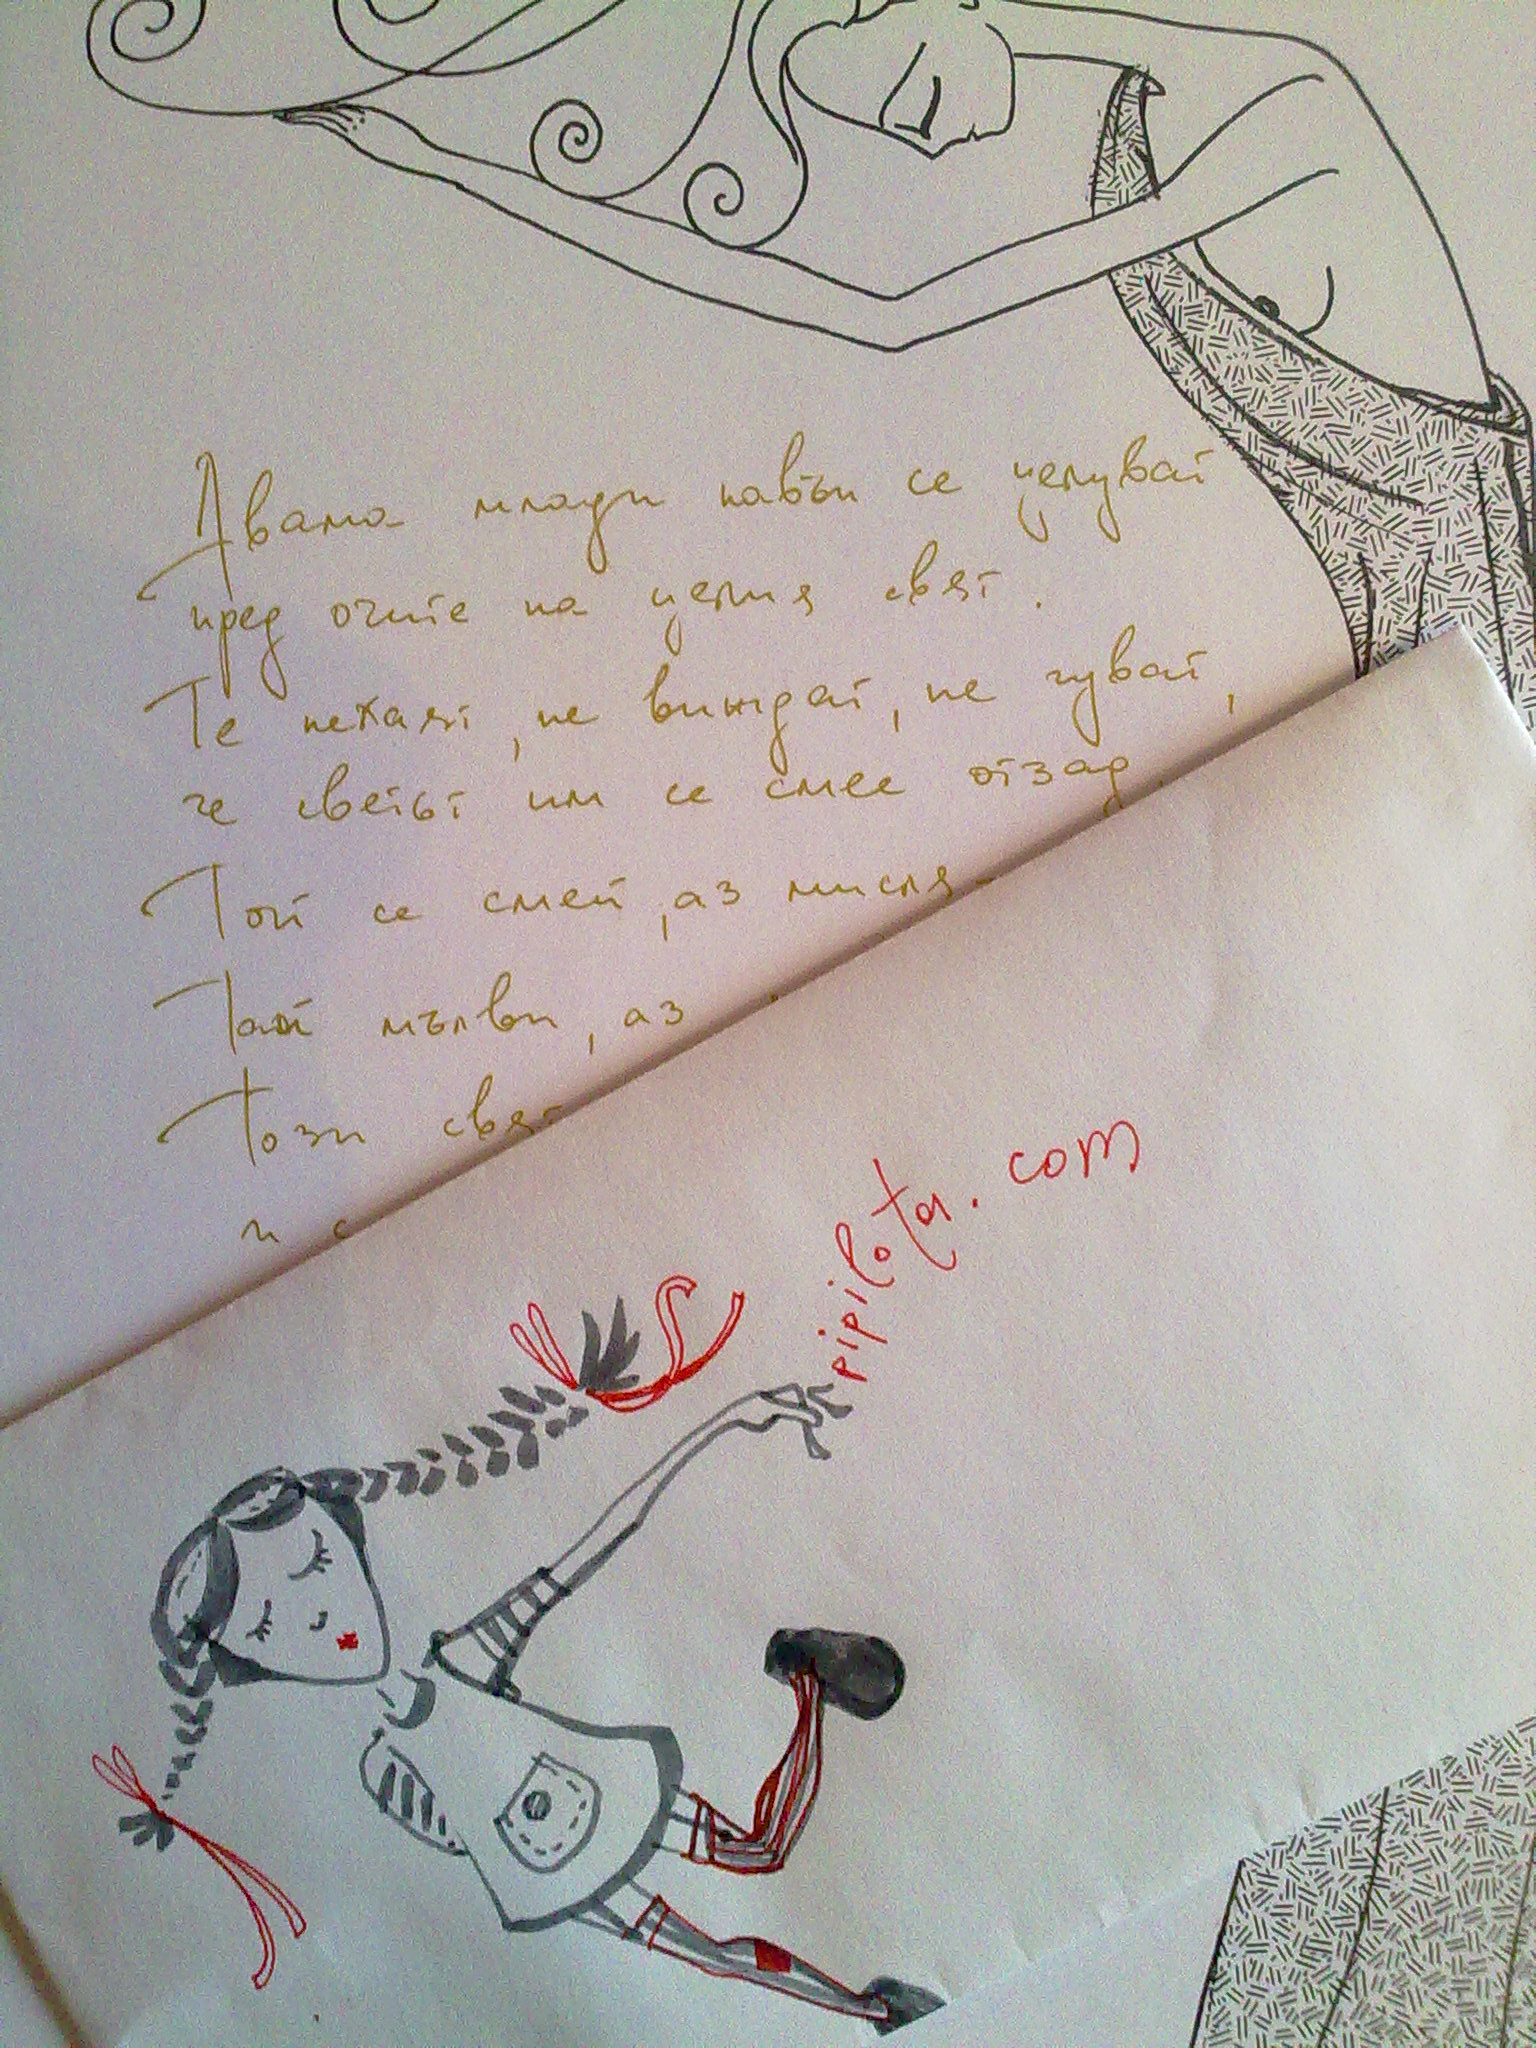 Двама млади навън се целуват
пред очите на целия свят.
Те нехаят, не виждат, не чуват,
че светът им се смее отзад
Той се смей, аз мисля
Той мълви, аз
Този свят
и с
pipilota.com